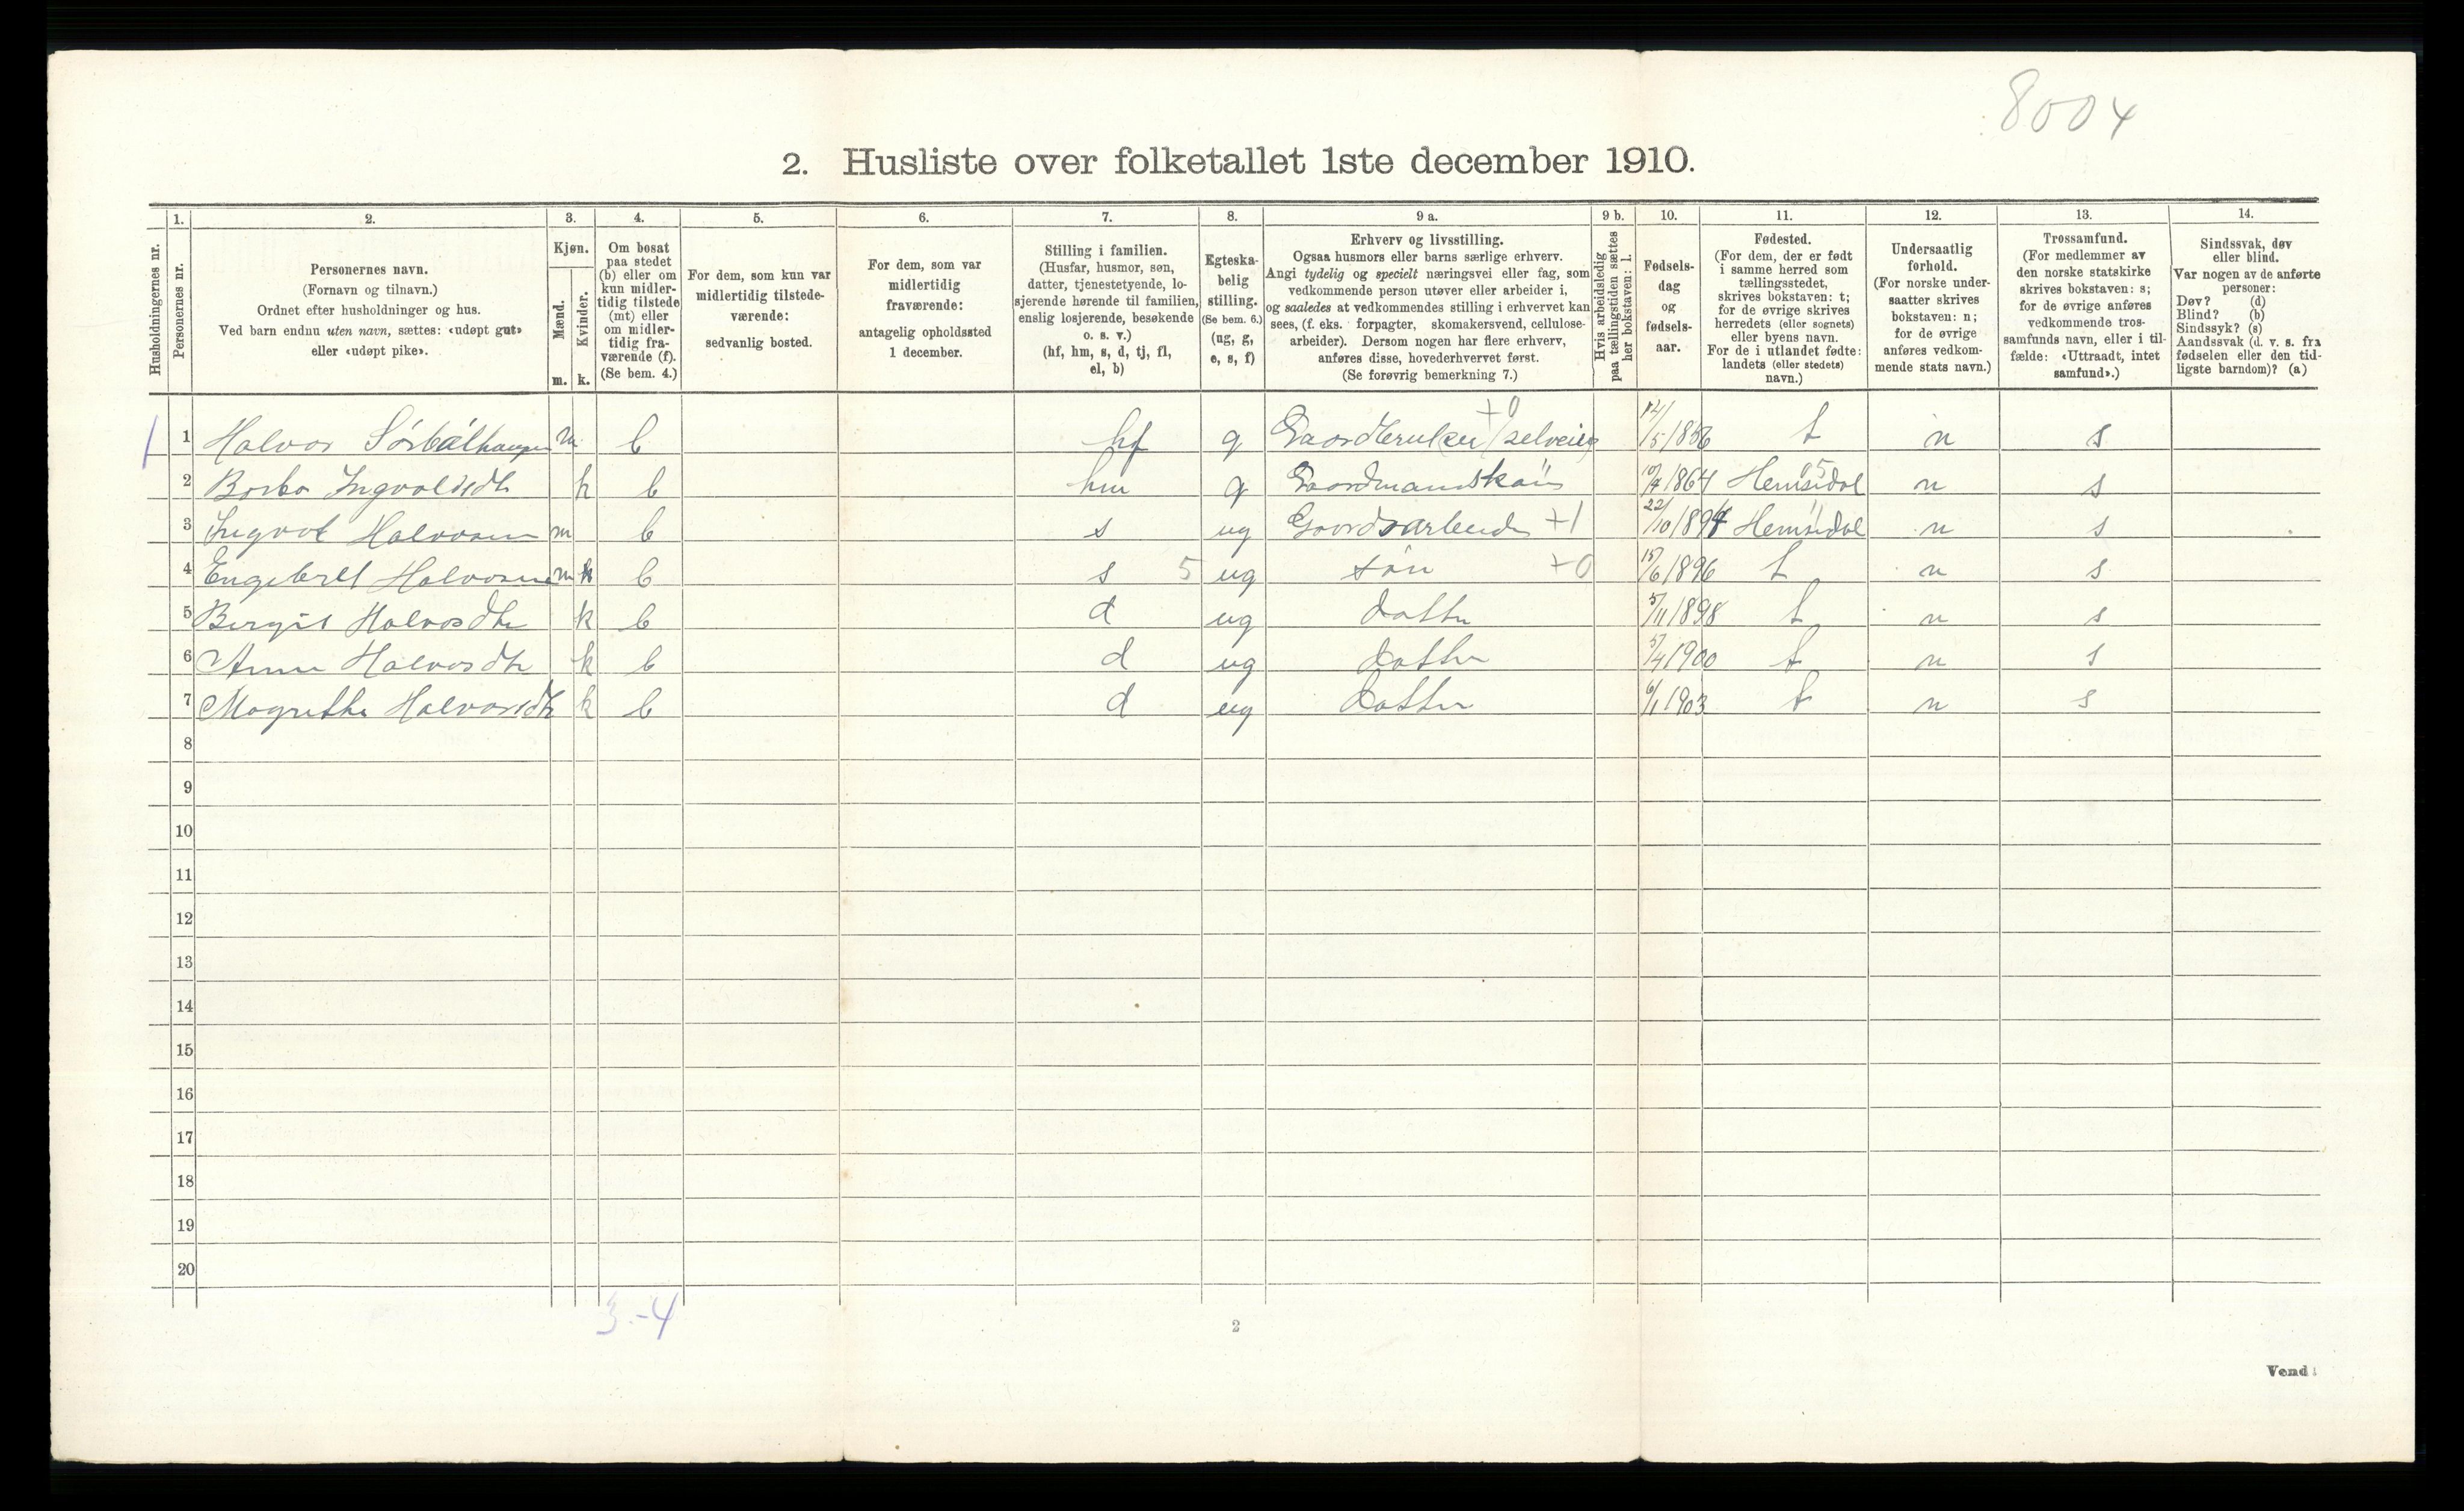 8004
2. Husliste over folketallet 1ste december 1910.
Husholdningernes nr.
1.
Personernes nr.
2.
Personernes navn.
(Fornavn og tilnavn.)
Ordnet efter husholdninger og hus.
Ved barn endnu uten navn, sættes: «udøpt gut»
eller «udøpt pike».
3.
Kjøn.
Mænd.
Kvinder.
m. k.
4.
Om bosat
paa stedet
(b) eller om
kun midler-
tidig tilstede
(mt) eller
om midler-
tidig fra-
værende (f).
(Se bem. 4.)
5.
For dem, som kun var
midlertidig tilstede-
værende:
sedvanlig bosted.
6.
For dem, som var
midlertidig
fraværende:
antagelig opholdssted
1 december.
7.
Stilling i familien.
(Husfar, husmor, søn,
datter, tjenestetyende, lo-
sjerende hørende til familien,
enslig losjerende, besøkende
o. s. v.)
(hf, hm, s, d, tj, fl,
el, b)
8.
Egteska-
belig
stilling.
(Se bem. 6.)
(ug, g,
e, s, f)
9 a.
Erhverv og livsstilling.
Ogsaa husmors eller barns særlige erhverv.
Angi tydelig og specielt næringsvei eller fag, som
vedkommende person utøver eller arbeider i,
og saaledes at vedkommendes stilling i erhvervet kan
sees, (f. eks. forpagter, skomakersvend, cellulose-
arbeider). Dersom nogen har flere erhverv,
anføres disse, hovederhvervet først.
(Se forøvrig bemerkning 7.)
9 b.
Hvis arbeidsledig
paa tællingstiden sættes
her bokstaven: l.
10.
Fødsels-
dag
og
fødsels-
aar.
11.
Fødested.
(For dem, der er født
i samme herred som
tællingsstedet,
skrives bokstaven: t;
for de øvrige skrives
herredets (eller sognets)
eller byens navn.
For de i utlandet fødte:
landets (eller stedets)
navn.)
12.
Undersaatlig
forhold.
(For norske under-
saatter skrives
bokstaven: n;
for de øvrige
anføres vedkom-
mende stats navn.)
13.
Trossamfund.
(For medlemmer av
den norske statskirke
skrives bokstaven: s;
for de øvrige anføres
vedkommende tros-
samfunds navn, eller i til-
fælde: «Uttraadt, intet
samfund».)
14.
Sindssvak, døv
eller blind.
Var nogen av de anførte
personer:
Døv? (d)
Blind? (b)
Sindssyk? (s)
Aandssvak (d. v. s. fra
fødselen eller den tid-
ligste barndom)? (a)
1 1 Halvor Sørbølhaugen m b hf g Gaardbruker (selveier) +0 14/5 1856 t n s
2 Barbo Ingvoldsdtr k b hm g Gaardmandskone 1864 Hemsedal n s
3 Ingvol Halvorsen m b s ug Gaardsarbeider +1 22/10 1894 Hemsedal n s
4 Engebret Halvorsen m k b s 5 ug søn +0 15/6 1896 t n s
5 Birgit Halvorsdtr k b d ug datter 5/11 1898 t n s
6 Anne Halvorsdtr k b d ug datter 5/4 1900 t n s
7 Magrethe Halvorsdtr k b d ug datter 6/1 1903 t n s
8
9
10
11
12
13
14
15
16
17
18
19
20
3.-4
2
Vend!